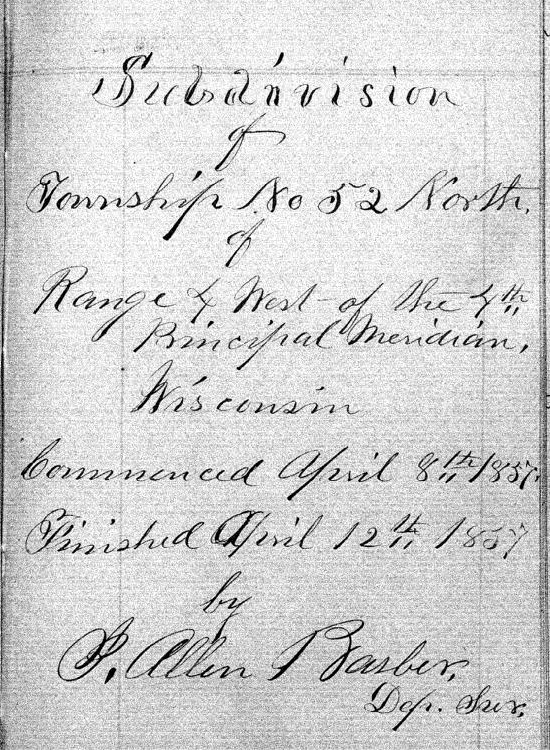 Subdivision
of
Township No 52 North.
of
Range 4 West of the 4th
Principal Meridian,
Wisconsin
Commenced April 8th 1857.
Finished April 12th 1857
by
J. Allen Barber,
Dep. Sur.